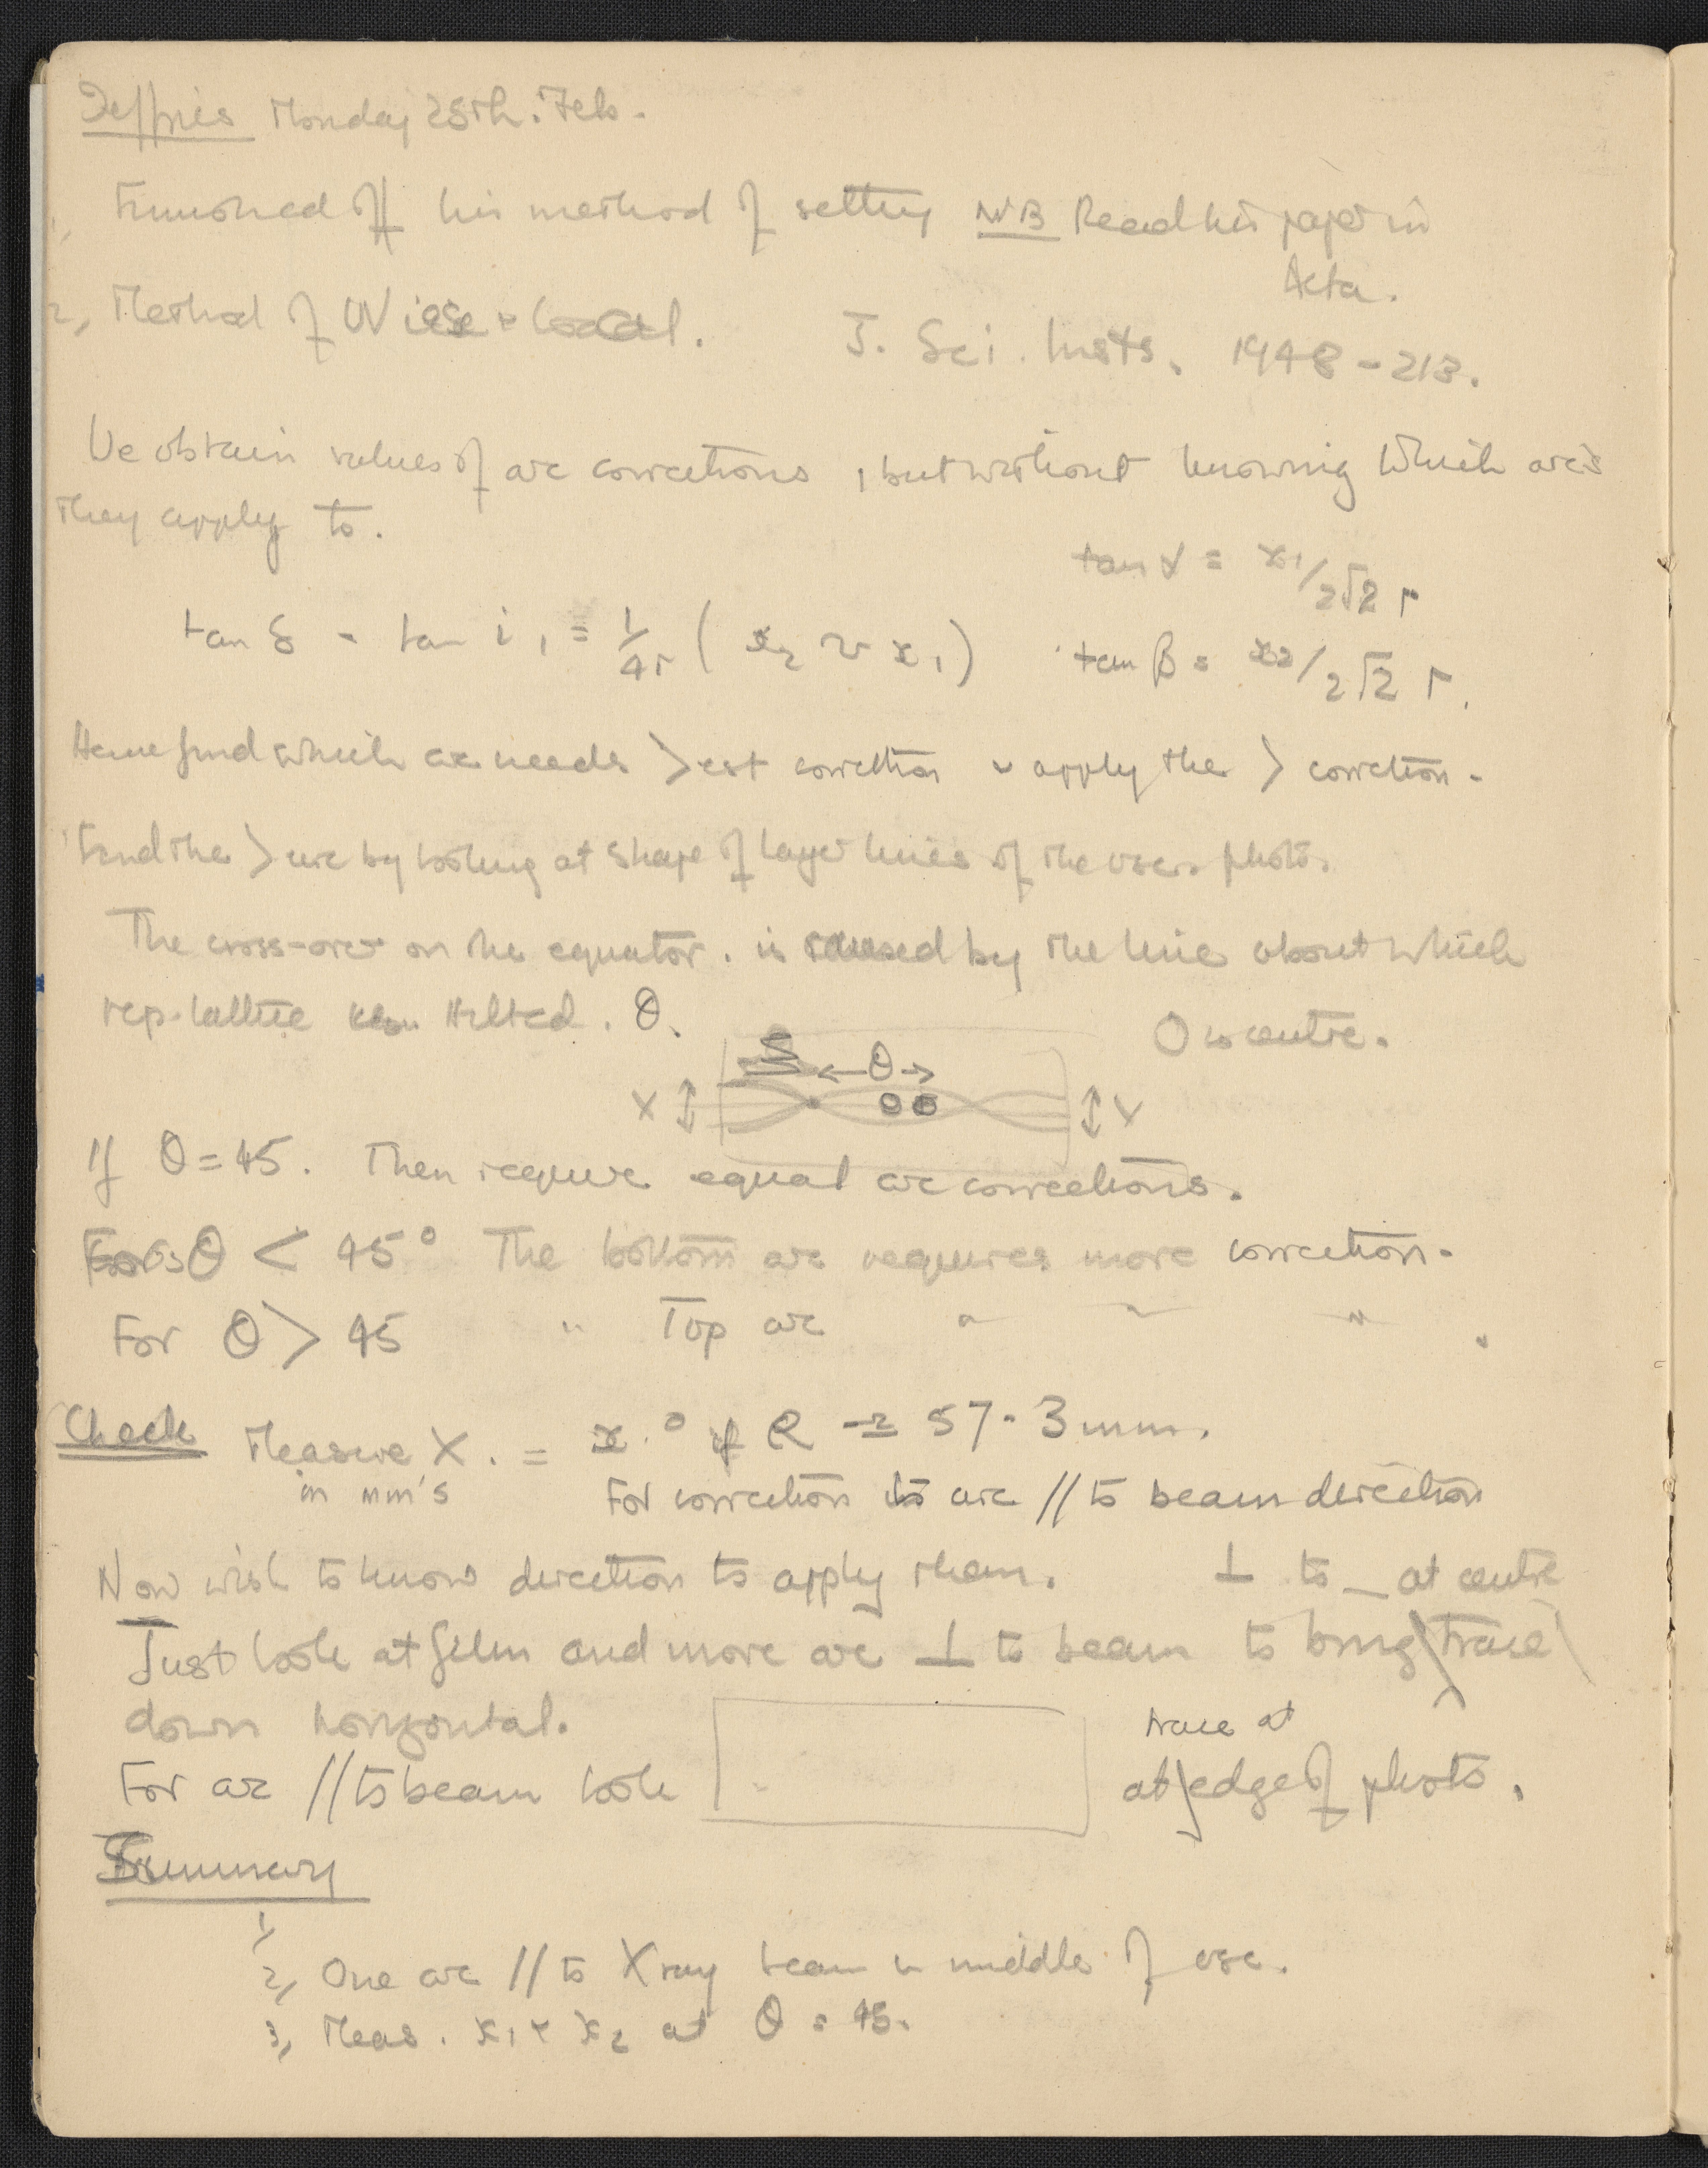 Jeffries Monday 25th. Feb.
1, Finished off his method of setting NB Read his paper in
Acta.
2, Method of W J. Sci. Insts. 1948 - 213.
We obtain values of arc corrections, but without knowing which arcs
they apply to.
tan α = x1/2√2 r
tan δ - tan i1 = 1/4r (x2 ~ x1) tan β = x2/2√2 r.
Hence find which arc needs >est correction & apply the > correction.
Find the > arc by looking at shape of layer lines of the osc. photo.
The cross-over on the equator. is caused by the line about which
rep. lattice tilted. θ.
O is centre.
←θ→
X ↕ ↕ Y
If θ = 45. Then require equal arc corrections.
For θ < 45° The bottom arc requires more correction.
For θ > 45 " Top arc " " "
Check Measure X. = x.° if R = 57.3 mm.
in mm's For correction to arc // to beam direction
Now wish to know direction to apply them. ⊥ to at centre
Just look at film and move arc ⊥ to beam to bring trace
down horizontal.
trace at
For arc // to beam look at edge of photo.
Summary
1,
2, One arc // to X ray beam in middle of osc.
3, Meas. x1 & x2 at θ = 45.